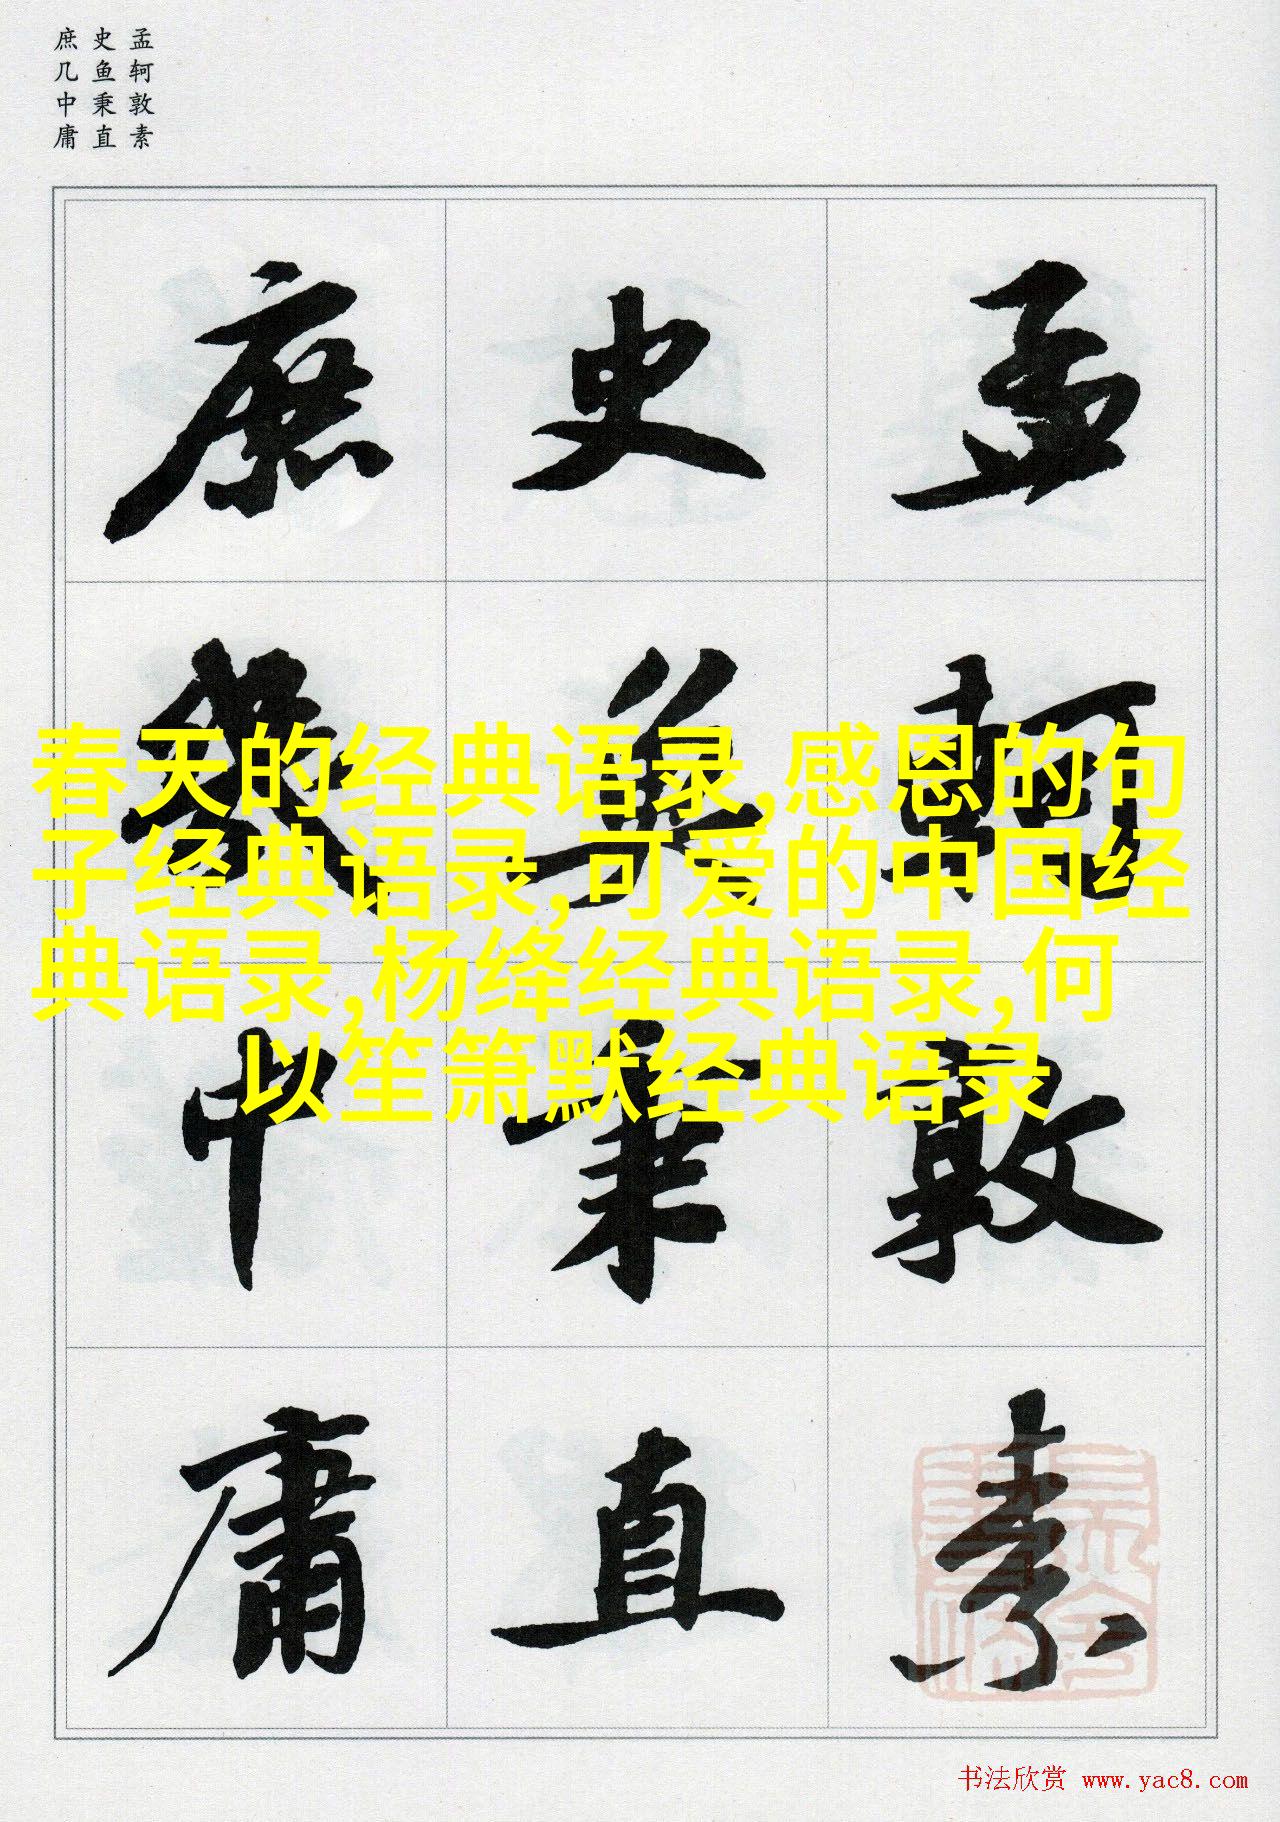 孟轲敦素
史鱼秉直
庶几中庸
孟軻敦素
史魚秉直
庶幾中庸
春天的经典语录,感恩的句
子经典语录,可爱的中国经
典语录,杨绛经典语录,何
以笙箫默经典语录
书法欣赏 www.yac8.com